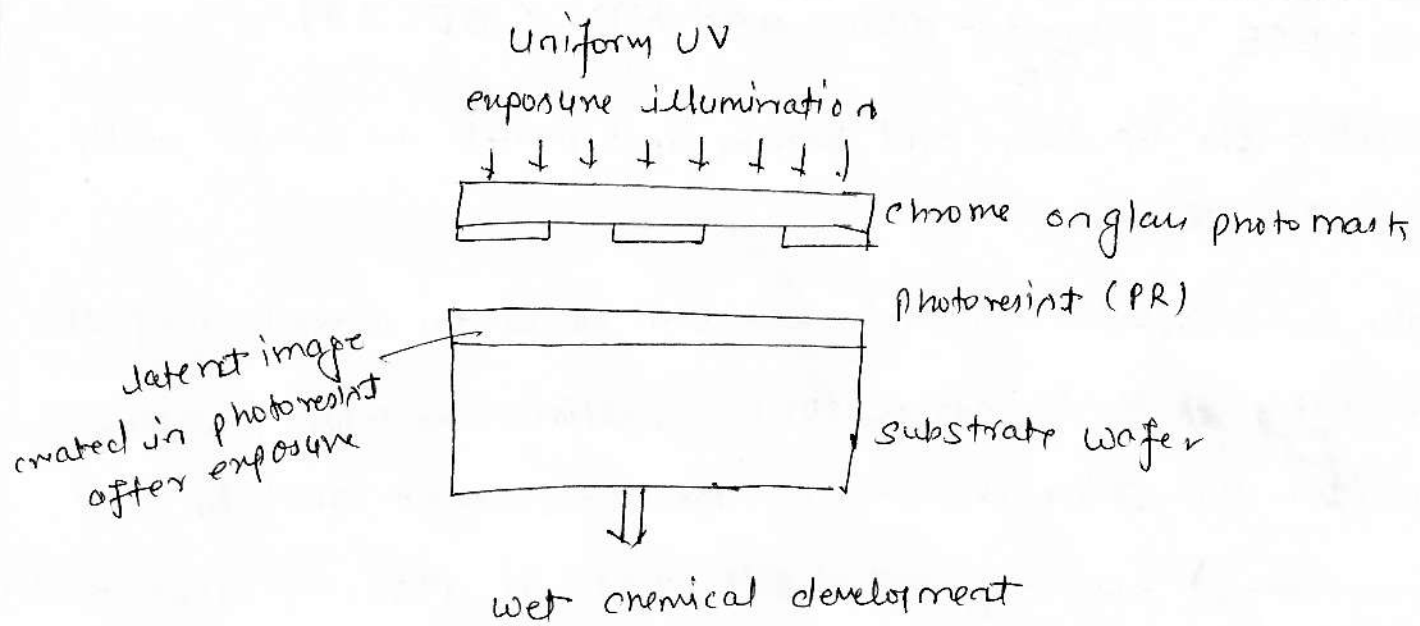 Uniform UV
exposure illumination
chrome on glass photomask
photoresist (PR)
latent image
created in photoresist
after exposure
substrate wafer
wet chemical development